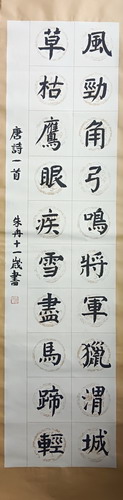 風勁角弓鳴將軍獵渭城
草枯鷹眼疾雪盡馬蹄輕
唐詩一首
朱冉十一歲書